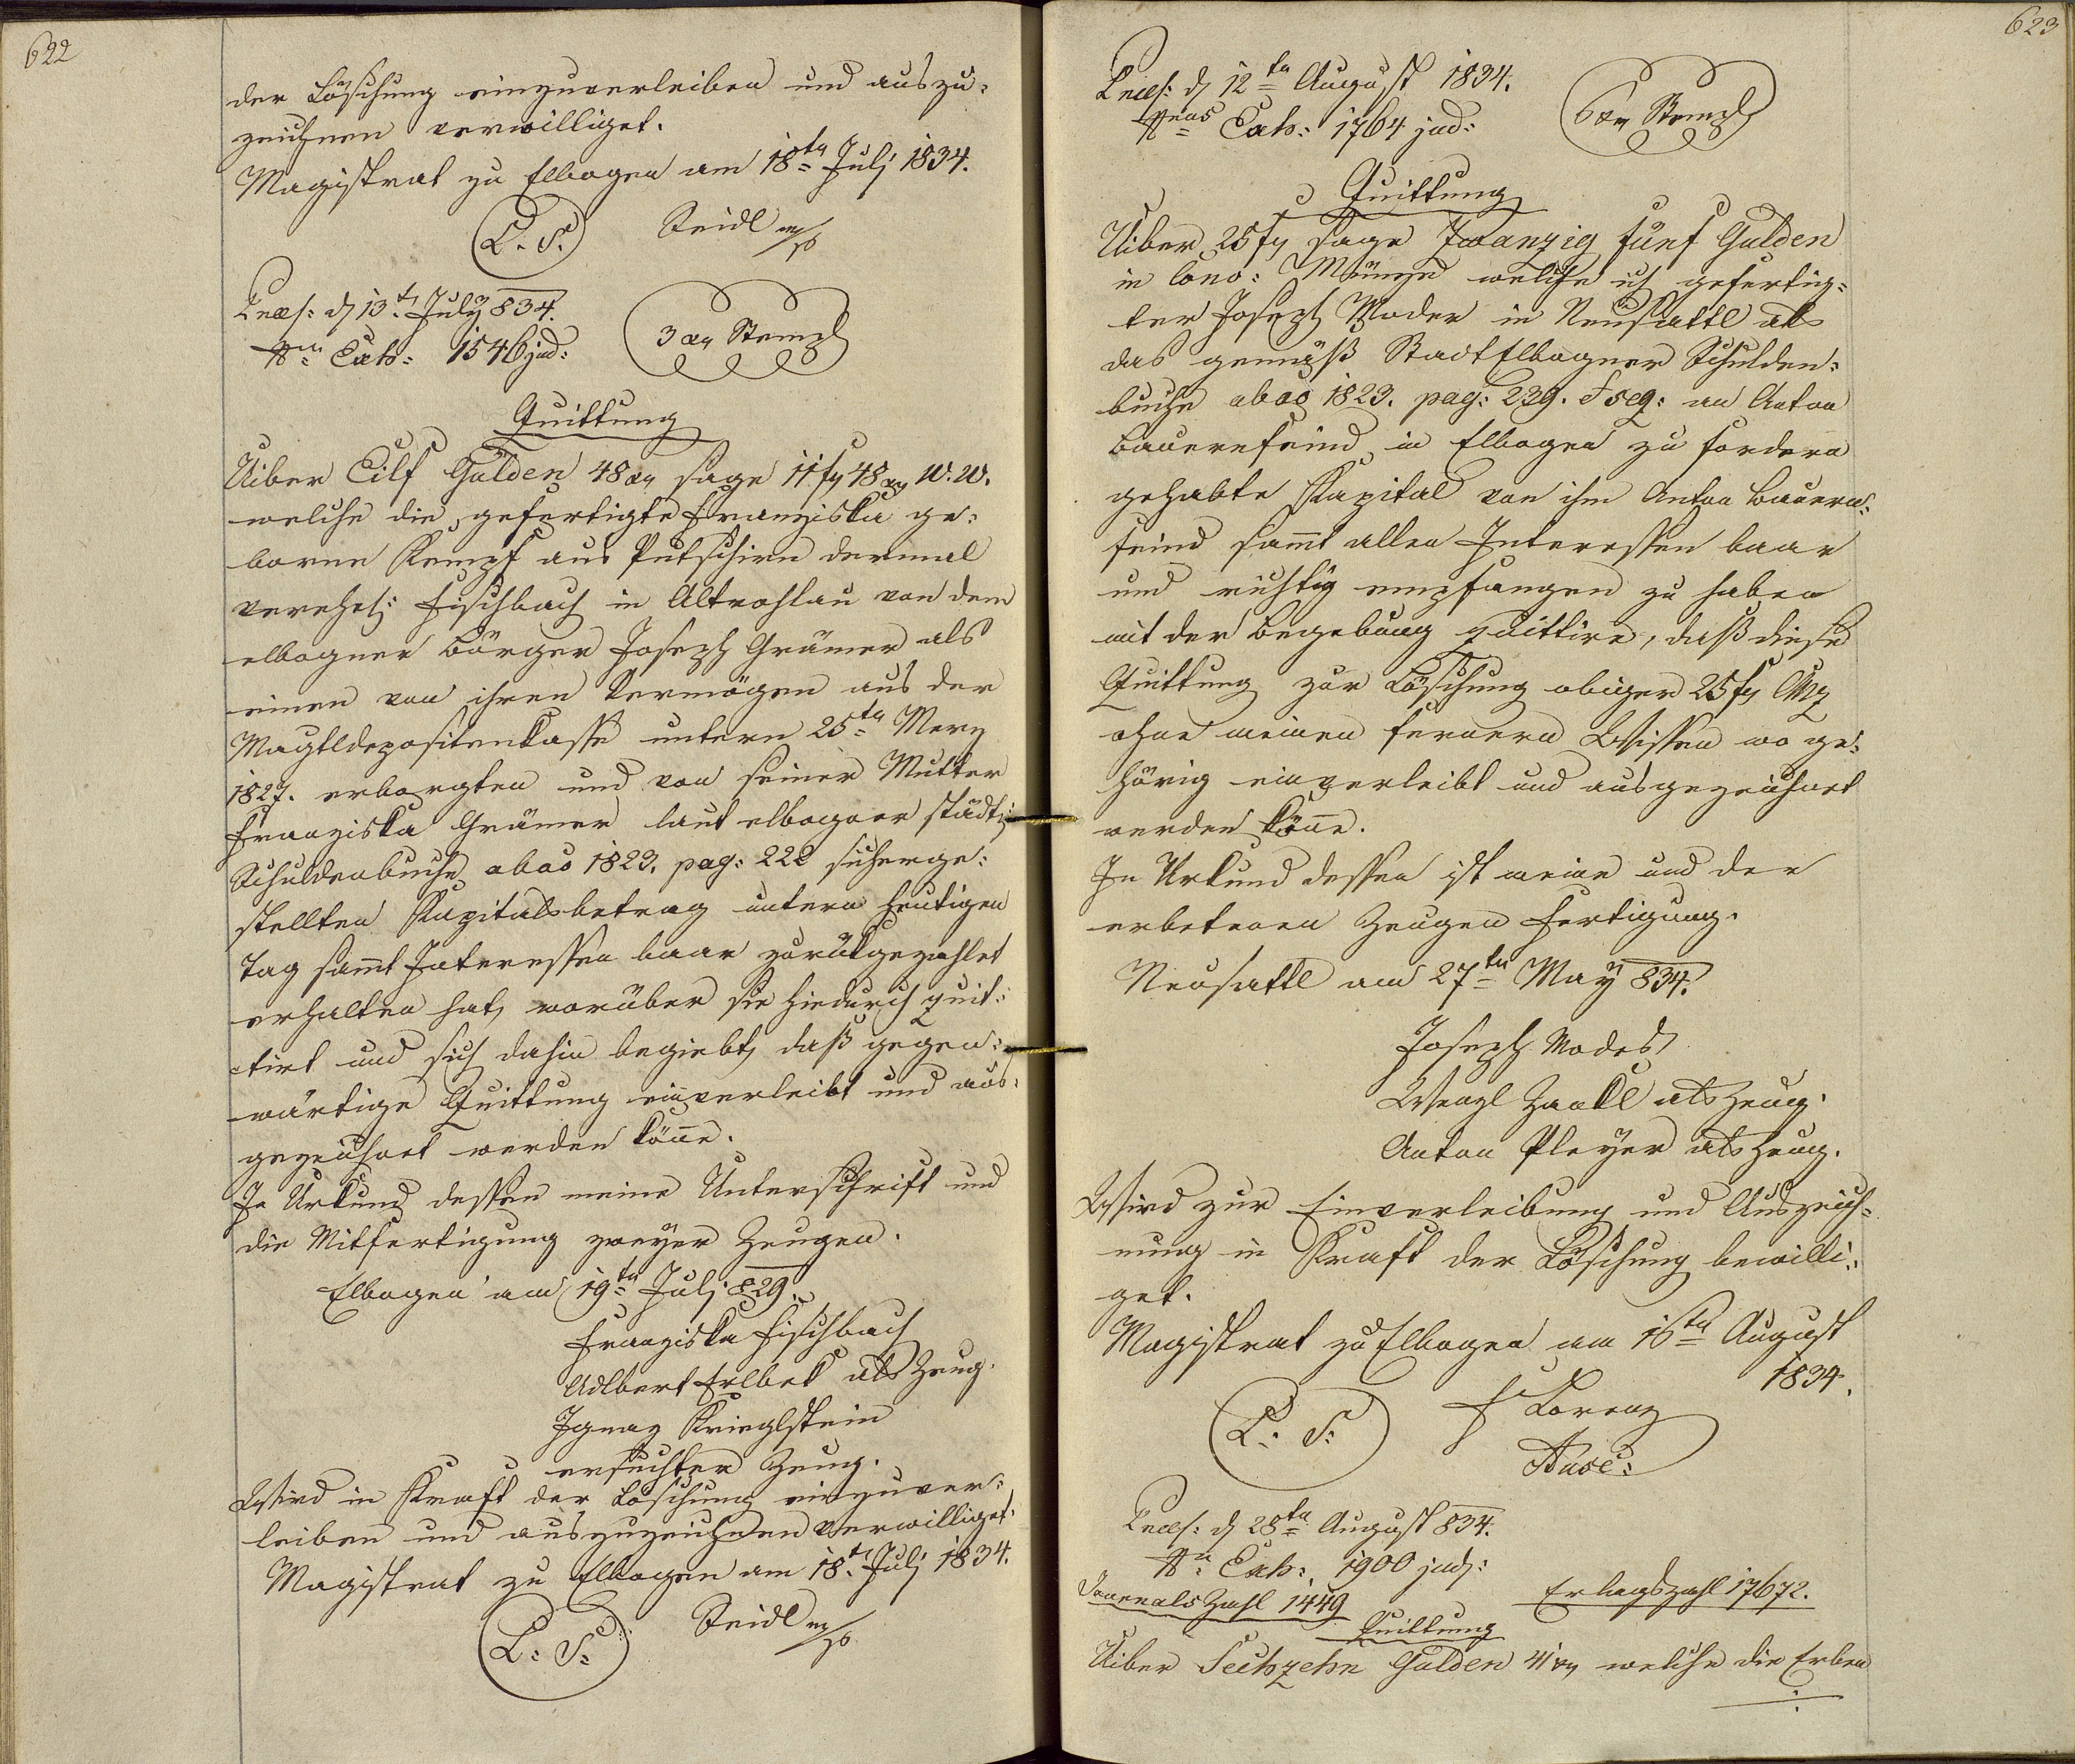 622
der Löschung einzuverleiben und auszu-
zeichnen verwilliget.
Magistrat zu Elbogen am 18ten Juli 1834.
L. S. Seidl m/p
Præs: d 13t. July 834.
Nrus Exh: 1546 jud:
3 xr Stempl
Quittung
Uiber Eilf Gulden 48 xr sage 11 fr 48 xr W. W.
welche die gefertigte Franziska ge-
borne Kempf aus Putschirn dermal
verehel: Fischbach in Altrohlau von dem
elbogner Bürger Joseph Grämer als
einen von ihren Vermögen aus der
Magtldepositenkasse untern 25ten Merz
1827. erborgten und von seiner Mutter
Franziska Grämer laut elbogner städt:
Schuldenbuche abao 1823. pag: 222 sicherge-
stellten Kapitalsbetrag untern heutigen
Tag samt Interessen baar zurükgezahlet
erhalten hat, worüber sie hiedurch quit-
tirt und sich dahin begiebt, daß gegen-
wärtige Quittung einverleibt und aus-
gezeichnet werden könne.
In Urkund dessen meine Unterschrift und
die Mitfertigung zweyer Zeugen.
Elbogen am 19ten Juli 829.
Franziska Fischbach
Adlbert Erlbek als Zeug.
Ignaz Krieglstein
ersuchter Zeug.
Wird in Kraft der Löschung einzuver-
leiben und auszuzeichnen verwilliget.
Magistrat zu Elbogen am 18t. Juli 1834.
L: S: Seidl m/p
623
Præs: d 12ten August 1834.
Nrus Exh: 1764 jud:
6 xr Stempl
Quittung
Uiber 25 fr sage Zwanzig fünf Gulden
in Conv: Münze welche ich gefertig-
ter Joseph Moder in Neusattl als
das gemäß Stadt Elbogner Schulden-
buche abao 1823. pag: 239. & seq: an Anton
Bauernfeind in Elbogen zu fordern
gehabte Kapital von ihm Anton Bauern-
feind sammt allen Interessen baar
und richtig empfangen zu haben
mit der Begebung quittire, daß diese
Quittung zur Löschung obiger 25 fr CMz
ohne meinen fernern Wissen wo ge-
hörig einverleibt und ausgezeichnet
werden könne.
In Urkund dessen ist meine und der
erbetenen Zeugen Fertigung.
Neusattl am 27ten May 834.
Joseph Moder
Wenzl Zankl als Zeug.
Anton Pleyer als Zeug.
Wird zur Einverleibung und Auszeich-
nung in Kraft der Löschung bewilli-
get.
Magistrat zu Elbogen am 16ten August
1834.
L: S: F Lorenz
Præs: d 28ten August 834.
Nr: Exh: 1900 jud:
Journals Zahl 1449 Erlagszahl 17672.
Quittung
Uiber Sechzehn Gulden 41 xr welche die Erben